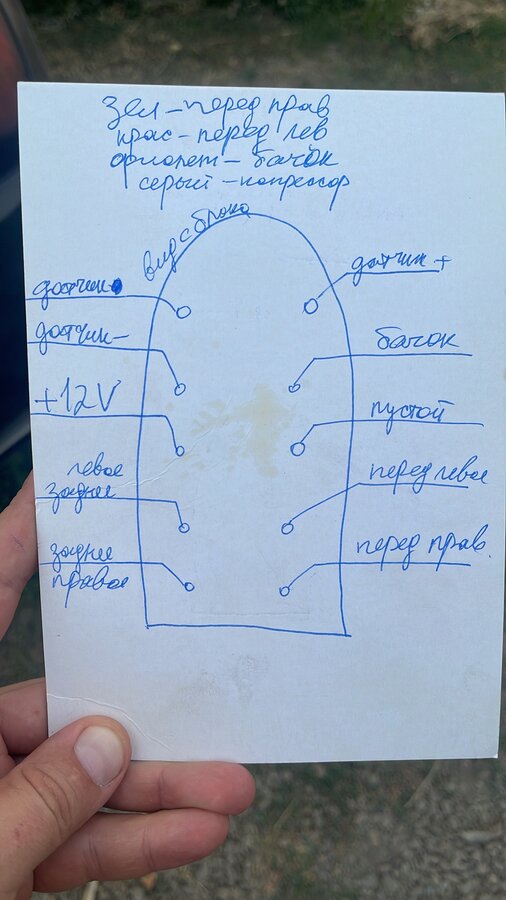 зел - перед прав
крас - перед лев
фиолет - бачок
серый - компрессор
вид с блока
датчик
датчик +
датчик -
бачок
+12V
пустой
левое
заднее
перед левое
заднее
правое
перед прав.